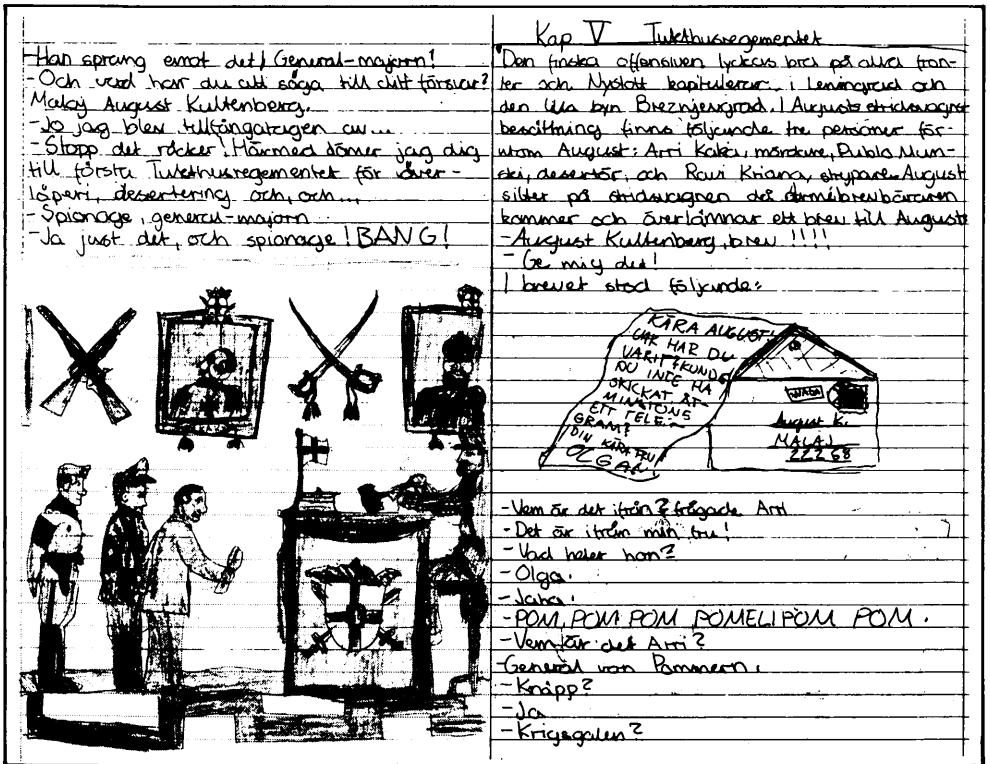 -Han sprang emot det, General-majorn!
-Och vad har du att säga till ditt försvar?
Malaj August Kultenberg.
-Jo jag blev tillfångatagen av...
-Stopp det räcker! Härmed dömer jag dig
till första Tukthusregementet för över-
löperi, desertering och, och...
- Spionage, general-majorn
-Ja just det, och spionage! BANG!
Kap V Tukthusregementet
Den finska offensiven lyckas bra på alla fron-
ter och Nyslott kapitulerar, i Leningrad och
den lilla byn Breznjevgrad. I Augusts stridsvagns
besättning finns följande tre personer för-
utom August: Arri Kaka, mördare, Pablo Mun-
ski, desertör, och Ravi Kriana, strypare. August
sitter på stridsvagnen då armébrevbäraren
kommer och överlämnar ett brev till August
-August Kultenberg, brev !!!!
- Ge mig det!
I brevet stod följande:
KÄRA AUGUST!
VAR HAR DU
VARIT? KUNDE
DU INTE HA
SKICKAT ÅT-
MINSTONS
ETT TELE-
GRAM?
DIN KÄRA FRU
OLGA
August K.
MALAJ
222 68
-Vem är det ifrån? frågade Arri
-Det är ifrån min fru!
-Vad heter hon?
-Olga.
-Jaha.
-POM, POM, POM POMELIPOM POM.
-Vem är det Arri?
-General von Pommern.
-Knäpp?
-Ja
-Krigsgalen?